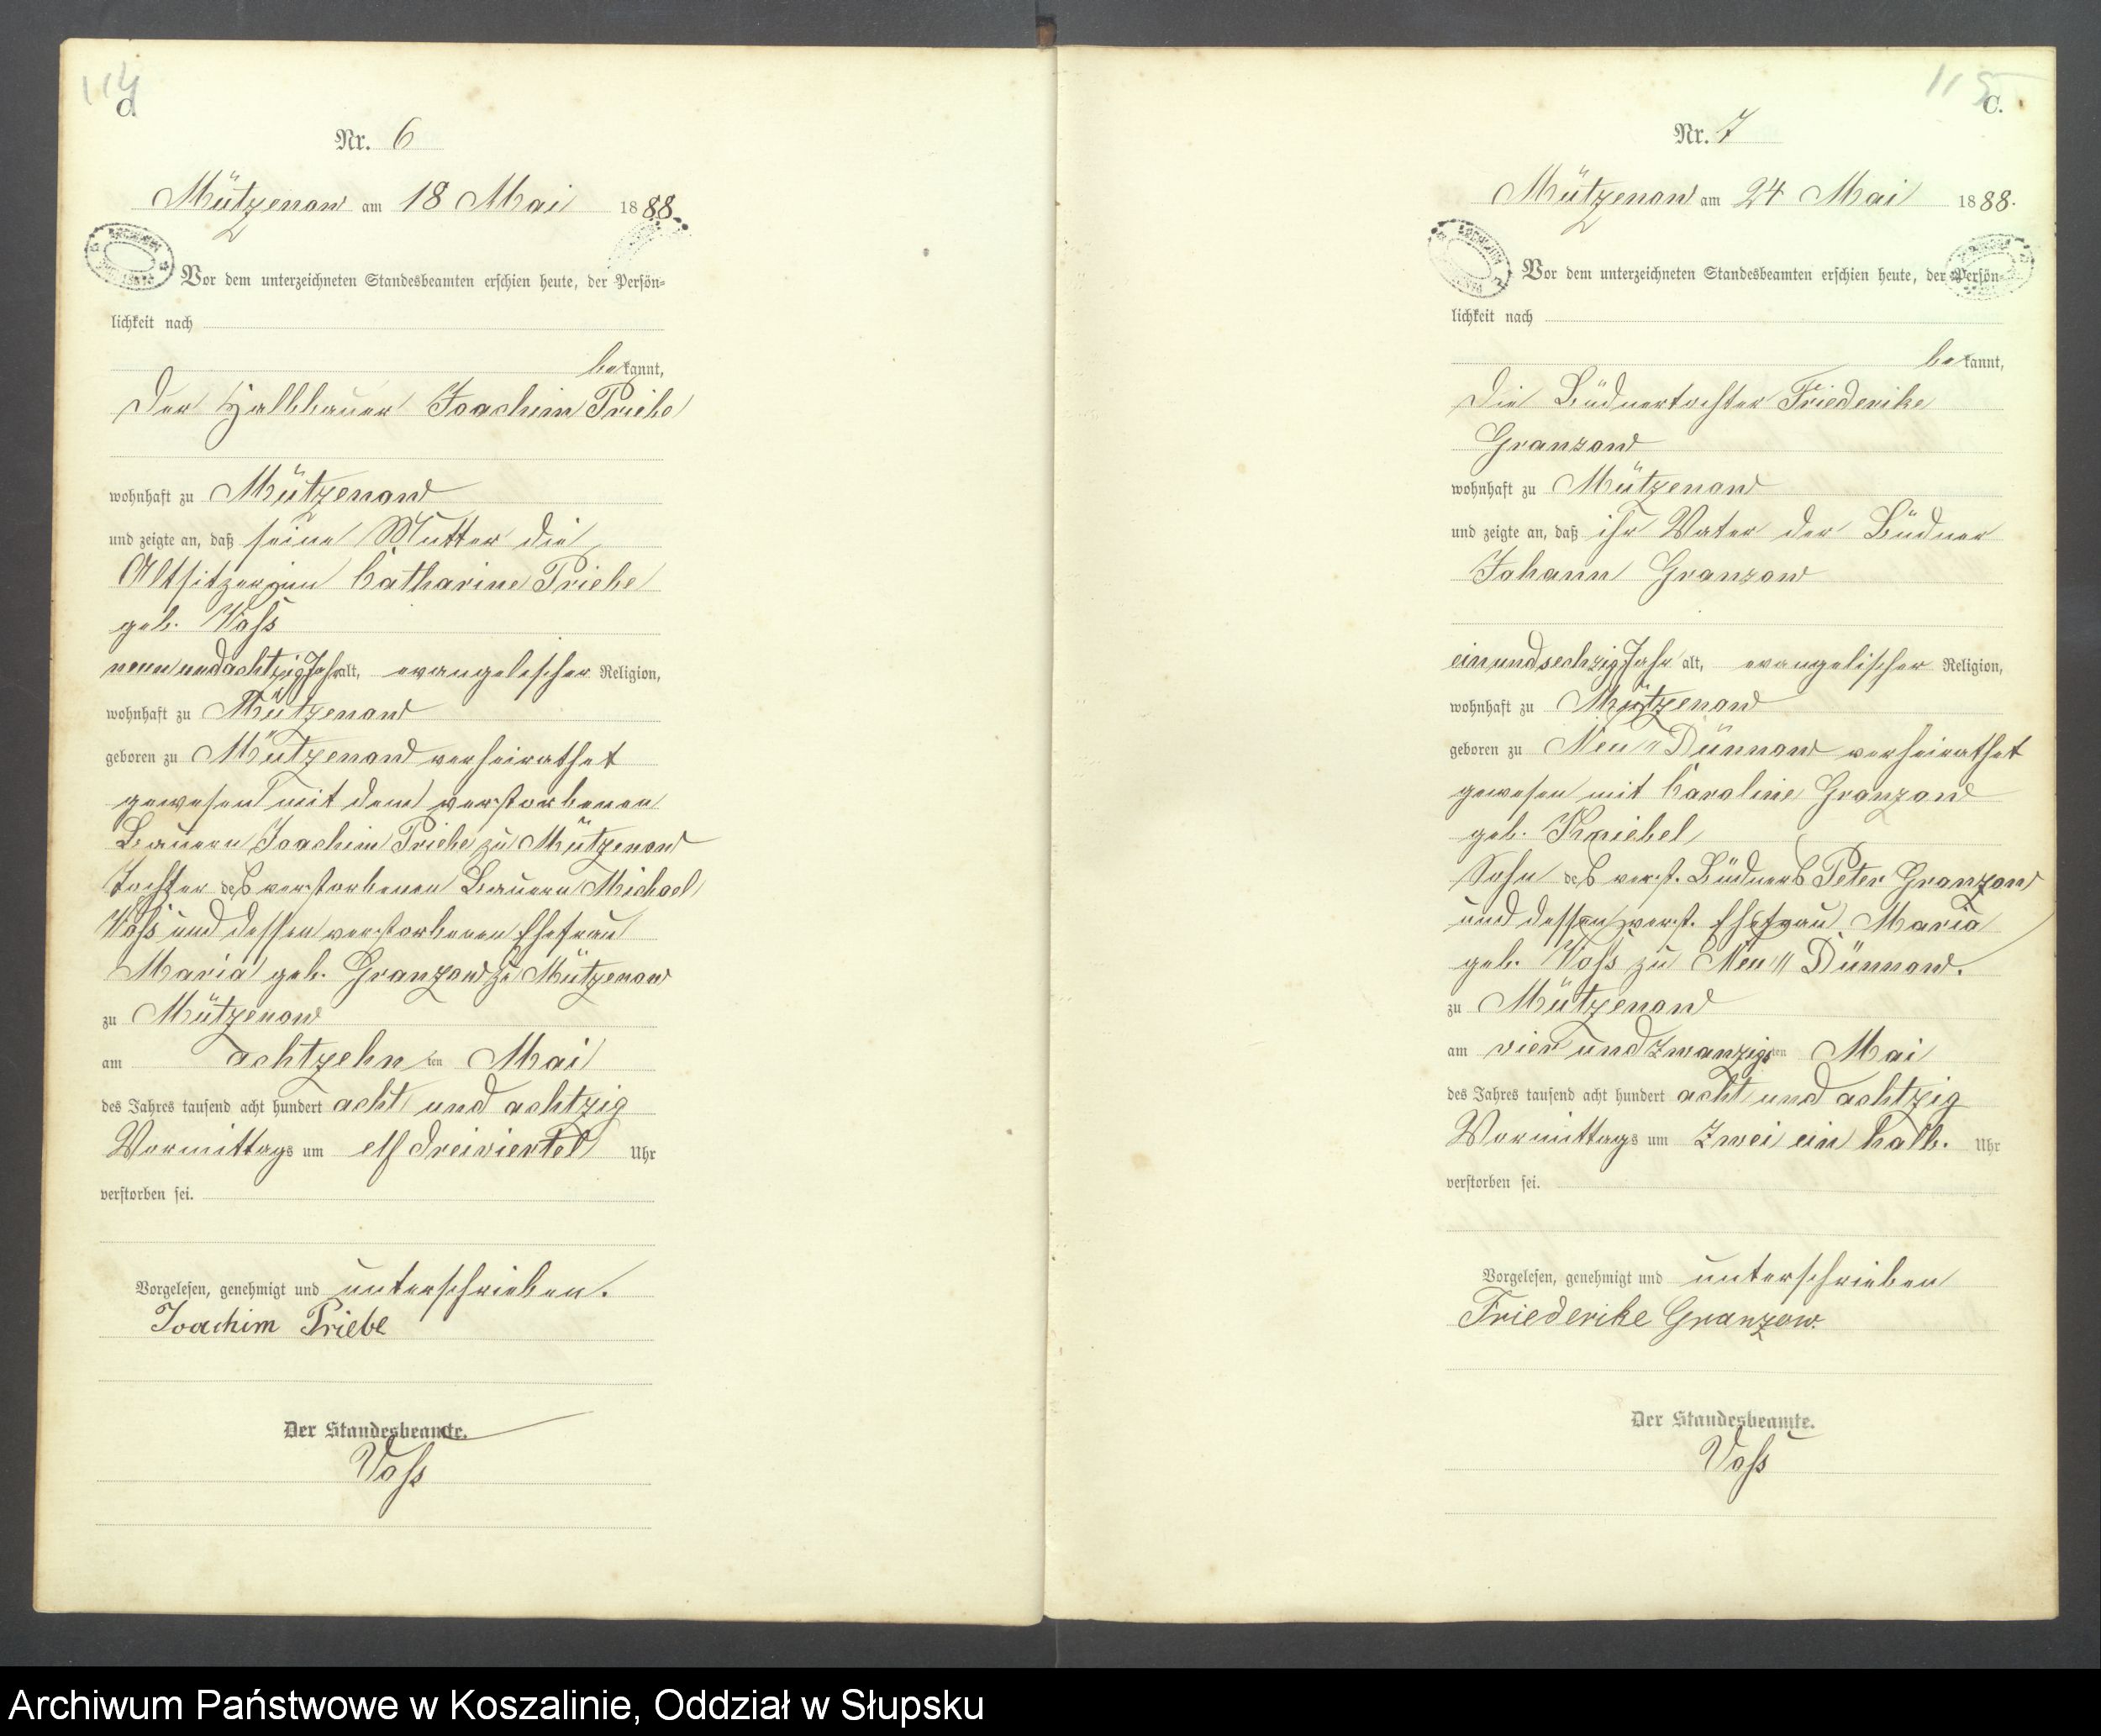 114
C.
Nr. 6
Mützenow am 18 Mai 1888.
Vor dem unterzeichneten Standesbeamten erschien heute, der Persön-
lichkeit nach
bekannt,
der Halbbauer Joachim Priebe
wohnhaft zu Mützenow
und zeigte an, daß seine Mutter die
Altsitzerin Catharine Priebe
geb. Voss
neun und achtzig Jahr alt, evangelischer Religion,
wohnhaft zu Mützenow
geboren zu Mützenow verheirathet
gewesen mit dem verstorbenen
Bauern Joachim Priebe zu Mützenow
Tochter des verstorbenen Bauern Michael
Voss und dessen verstorbenen Ehefrau
Maria geb. Granzow zu Mützenow
zu Mützenow
am achtzehn ten Mai
des Jahres tausend acht hundert acht und achtzig
Vormittags um elf dreiviertel Uhr
verstorben sei.
Vorgelesen, genehmigt und unterschrieben.
Joachim Priebe
Der Standesbeamte.
Voss
115
C.
Nr. 7
Mützenow am 24 Mai 1888.
Vor dem unterzeichneten Standesbeamten erschien heute, der Persön-
lichkeit nach
bekannt,
die Büdnertochter Friederike
Granzow
wohnhaft zu Mützenow
und zeigte an, daß ihr Vater der Büdner
Johann Granzow
ein und sechzig Jahr alt, evangelischer Religion,
wohnhaft zu Mützenow
geboren zu Neu Dünnow verheirathet
gewesen mit Caroline Granzow
geb. Kniebel
Sohn des verst. Büdners Peter Granzow
und dessen verst. Ehefrau Maria
geb. Voss zu Neu Dünnow.
zu Mützenow
am vier und zwanzigs ten Mai
des Jahres tausend acht hundert acht und achtzig
Vormittags um zwei ein halb. Uhr
verstorben sei.
Vorgelesen, genehmigt und unterschrieben
Friederike Granzow.
Der Standesbeamte.
Voss
Archiwum Państwowe w Koszalinie, Oddział w Słupsku